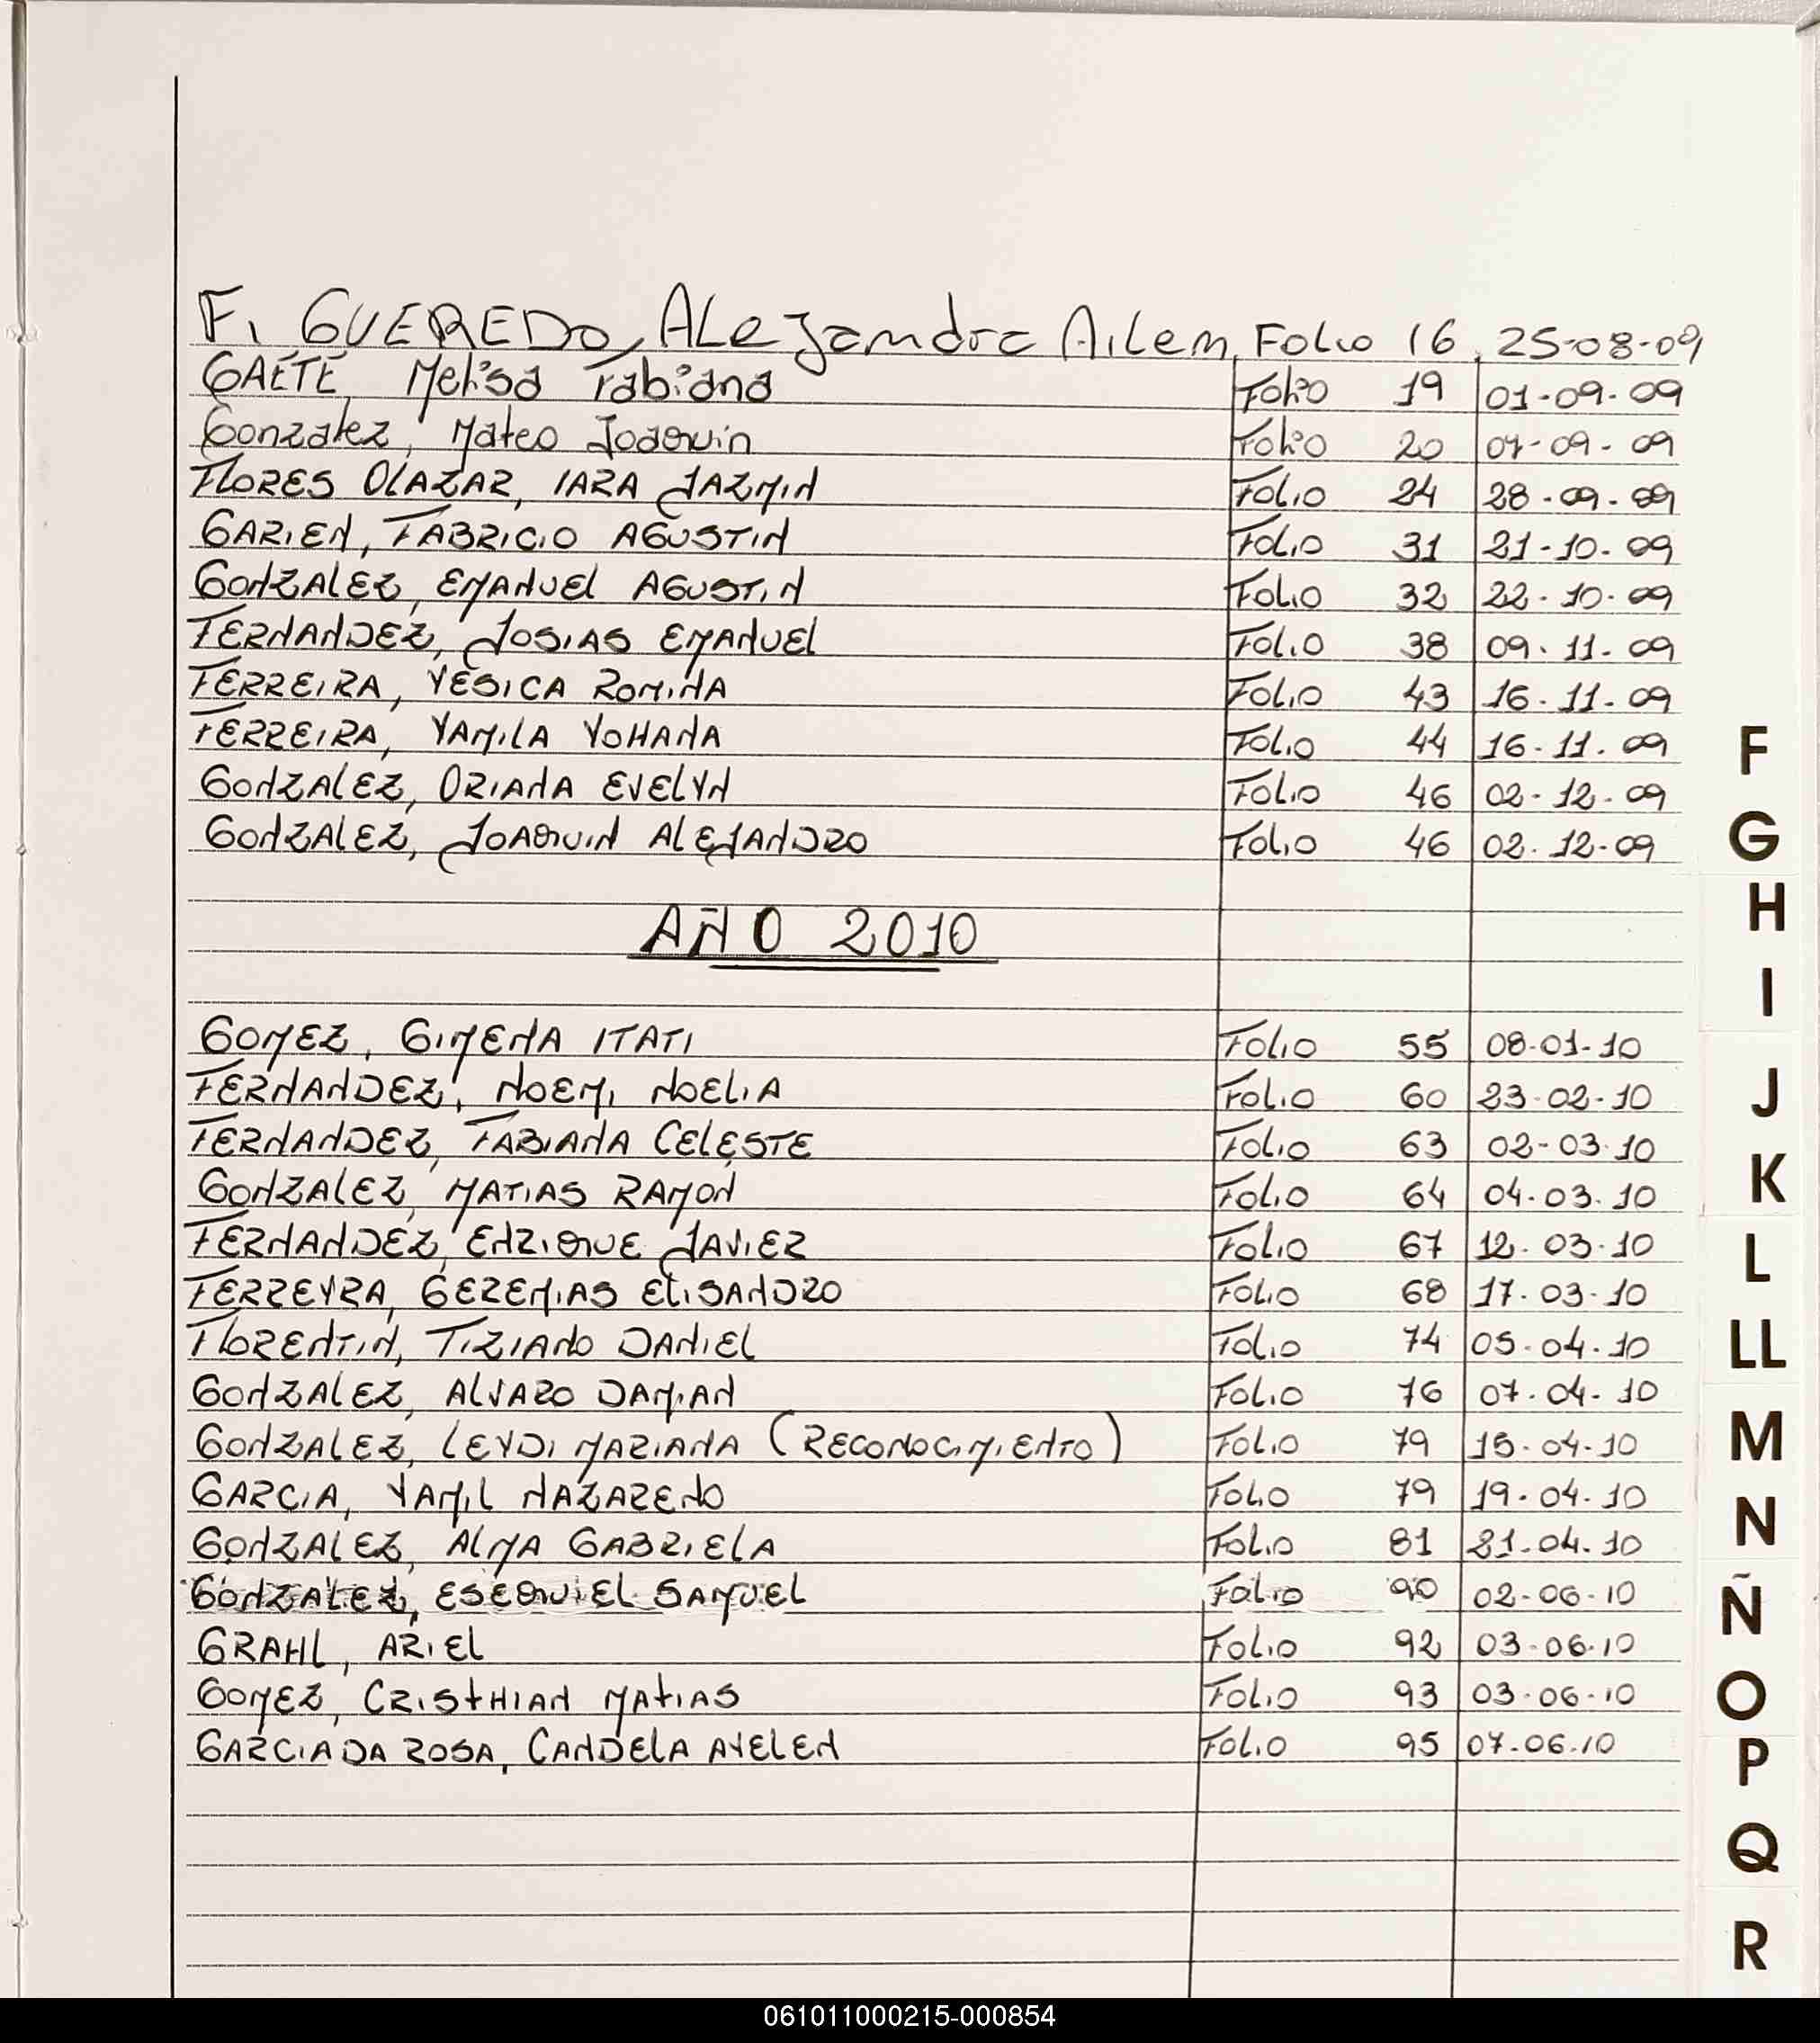 FIGUEREDO, ALeJandra Ailem, Folio 16, 25-08-09
GAETE, Melisa Fabiana Folio 19 01-09-09
Gonzalez, Mateo Joaquin Folio 20 07-09-09
FLORES OLAZAR, IARA JAZMIN Folio 24 28-09-09
GARIEN, FABRICIO AGUSTIN Folio 31 21-10-09
GONZALEZ, EMANUEL AGUSTIN Folio 32 22-10-09
FERNANDEZ, JOSIAS EMANUEL Folio 38 09-11-09
FERREIRA, YESICA ROMINA Folio 43 16-11-09
FERREIRA, YAMILA YOHANA Folio 44 16-11-09
GONZALEZ, ORIANA EVELYN Folio 46 02-12-09
GONZALEZ, JOAQUIN ALEJANDRO Folio 46 02-12-09
AÑO 2010
GOMEZ, GIMENA ITATI Folio 55 08-01-10
FERNANDEZ, NOEMI NOELIA Folio 60 23-02-10
FERNANDEZ, FABIANA CELESTE Folio 63 02-03-10
GONZALEZ, MATIAS RAMON Folio 64 04-03-10
FERNANDEZ, ENRIQUE JAVIER Folio 67 12-03-10
FERREYRA, GEREMIAS ELISANDRO Folio 68 17-03-10
FLORENTIN, TIZIANO DANIEL Folio 74 05-04-10
GONZALEZ, ALVARO DAMIAN Folio 76 07-04-10
GONZALEZ, LEYDI MARIANA (RECONOCIMIENTO) Folio 79 15-04-10
GARCIA, YAMIL NAZARENO Folio 79 19-04-10
GONZALEZ, ALMA GABRIELA Folio 81 21-04-10
GONZALEZ, ESEQUIEL SAMUEL Folio 90 02-06-10
GRAHL, ARIEL Folio 92 03-06-10
GOMEZ, CRISTHIAN MATIAS Folio 93 03-06-10
GARCIA DA ROSA, CANDELA AYELEN Folio 95 07-06-10
F
G
H
I
J
K
L
LL
M
N
Ñ
O
P
Q
R
061011000215-000854